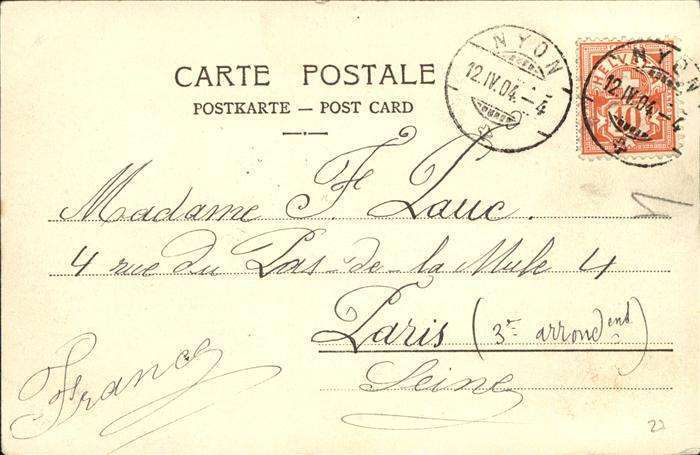 CARTE POSTALE
POSTKARTE — POST CARD
NYON
12.IV.04.–4
HELVETIA
10
NYON
12.IV.04.–4
Madame F. Lauc.
4 rue du Pas-de-la-Mule 4
Paris (3e arrondend)
Seine
France
22